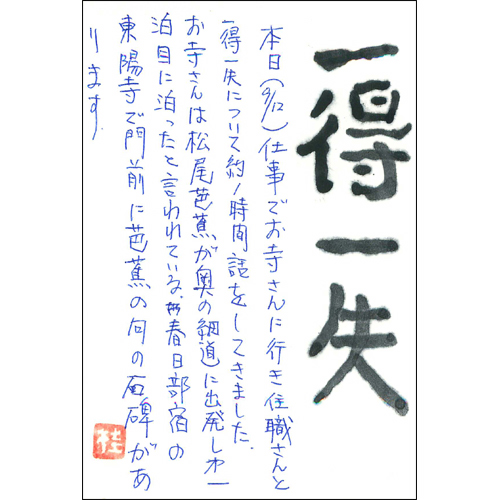 一得一失
本日(9/12)仕事でお寺さんに行き住職さんと
一得一失について約1時間話をしてきました.
お寺さんは松尾芭蕉が奥の細道に出発し才一
泊目に泊ったと言われている.春日部宿の
東陽寺で門前に芭蕉の句の石碑があ
ります.
桂